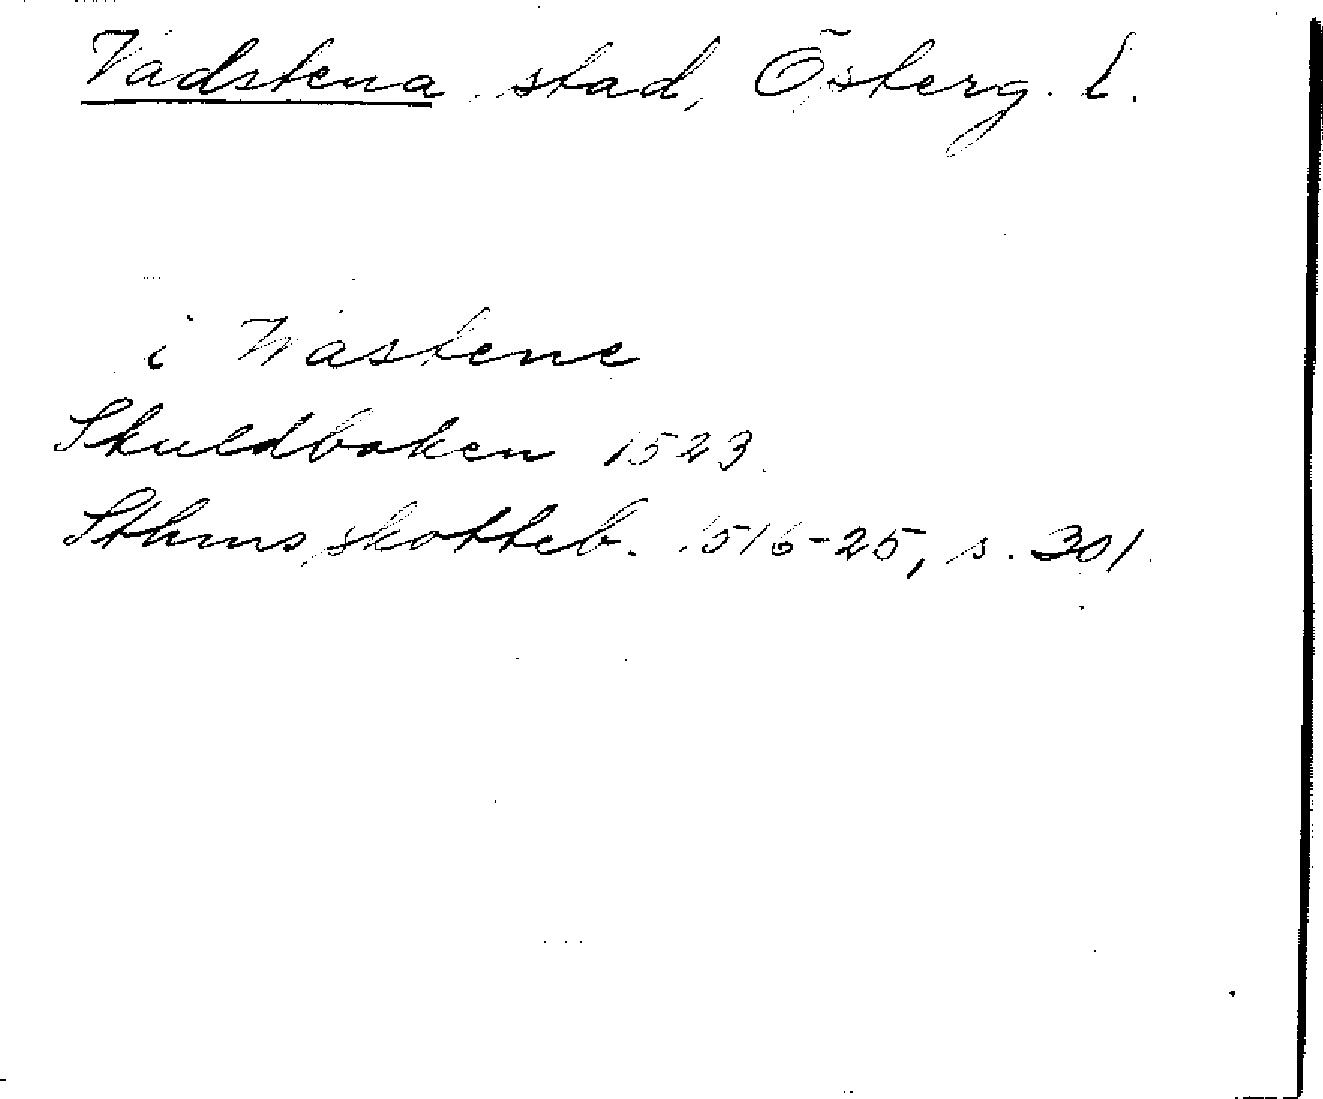 Vadstena stad, Österg. l.
i Wastene
Skuldboken 1523.
Sthms skotteb. 1516-25, s. 301.